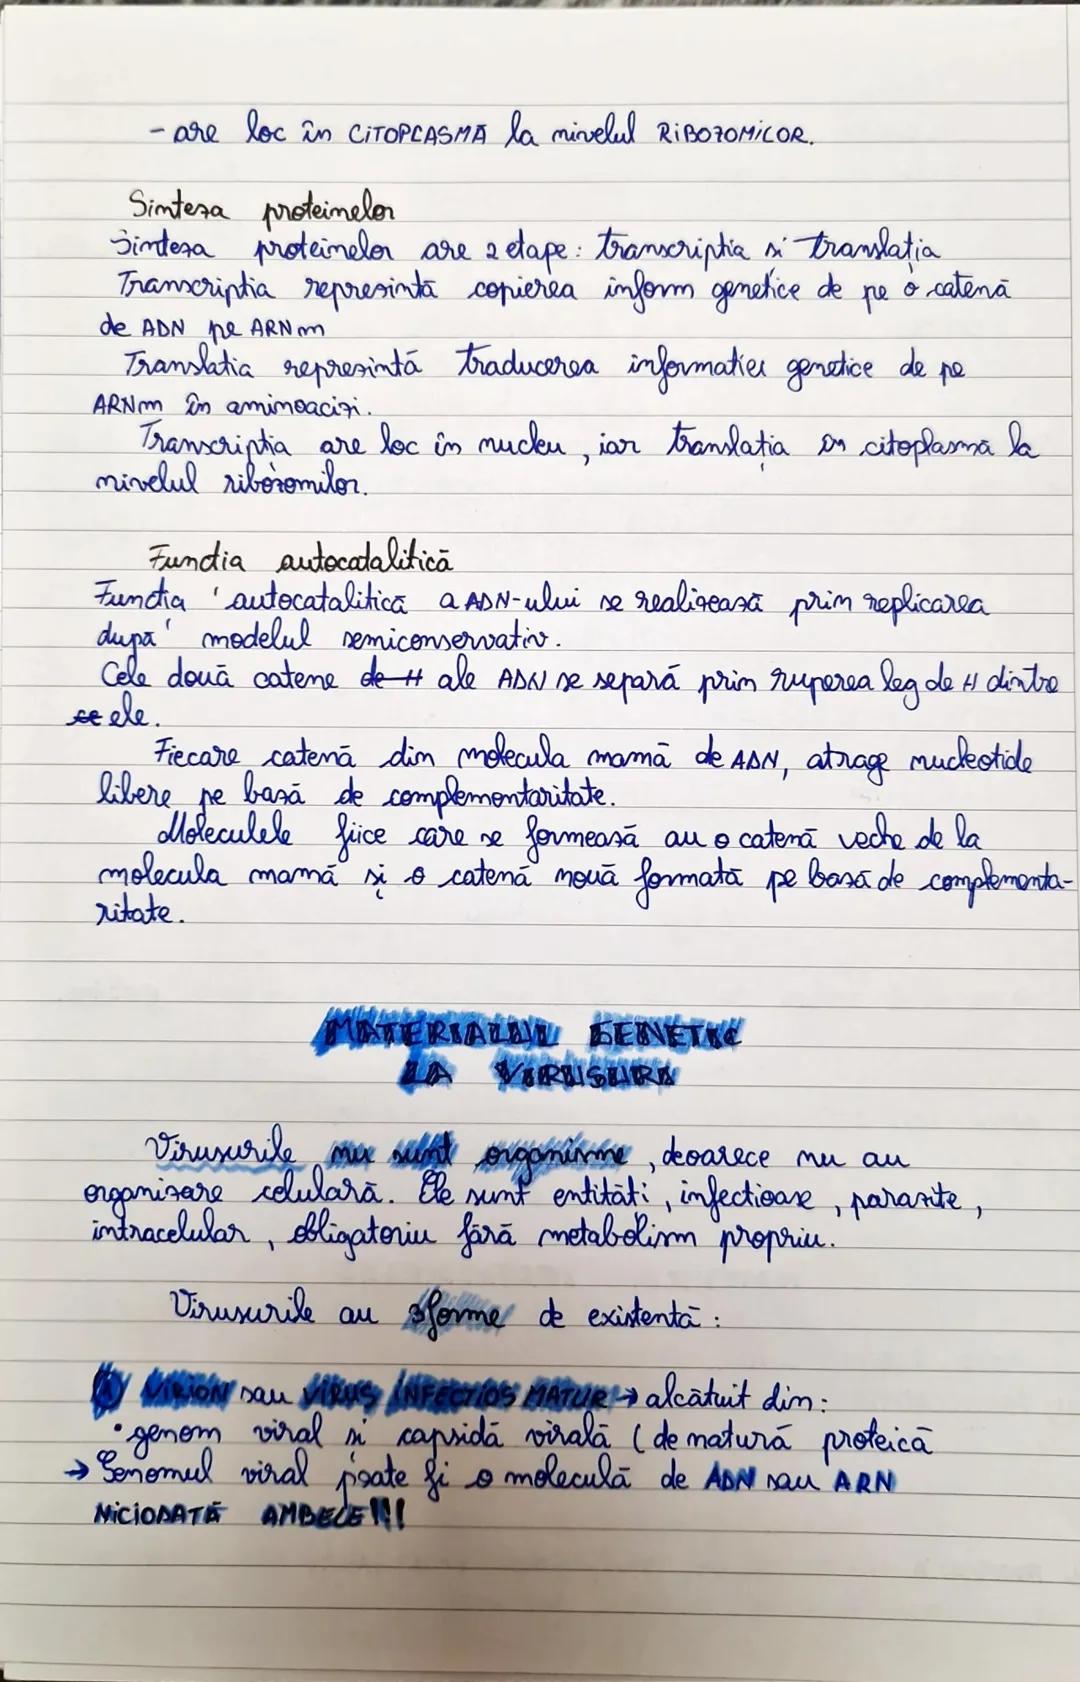 - are loc în CITOPLASMĂ la nivelul RIBOZOMILOR.
Sinteza proteinelor
Sinteza proteinelor are 2 etape: transcriptia si translația
Transcriptia represintă copierea inform genetice de pe o catenă
de ADN pe ARNm
Translatia represintă traducerea informatiei genetice de pe
ARNm în aminoacizi.
Transcriptia are loc în nucleu, iar translația în citoplasmă la
nivelul ribozomilor.
Functia autocatalitică
Functia autocatalitică a ADN-ului se realizează prin replicarea
după modelul semiconservativ.
Cele două catene de H ale ADN se separă prin ruperea leg de H dintre
ele.
Fiecare catenă din molecula mamă de ADN, atrage nucleotide
libere pe bază de complementaritate.
Moleculele fiice care se formează au o catenă veche de la
molecula mamă și o catenă nouă formată pe bază de complementa-
ritate.
MATERIALUL GENETIC
LA VIRUSURI
Virusurile nu sunt organisme, deoarece nu au
organizare celulară. Ele sunt entități, infectioase, parazite,
intracelular, obligatoriu fără metabolism propriu.
Virusurile au 3 forme de existentă:
VIRION sau VIRUS INFECTIOS MATUR → alcătuit din:
• genom viral si capsidă virală (de natură proteică
→ Genomul viral poate fi o moleculă de ADN sau ARN
NICIODATĂ AMBELE!!!